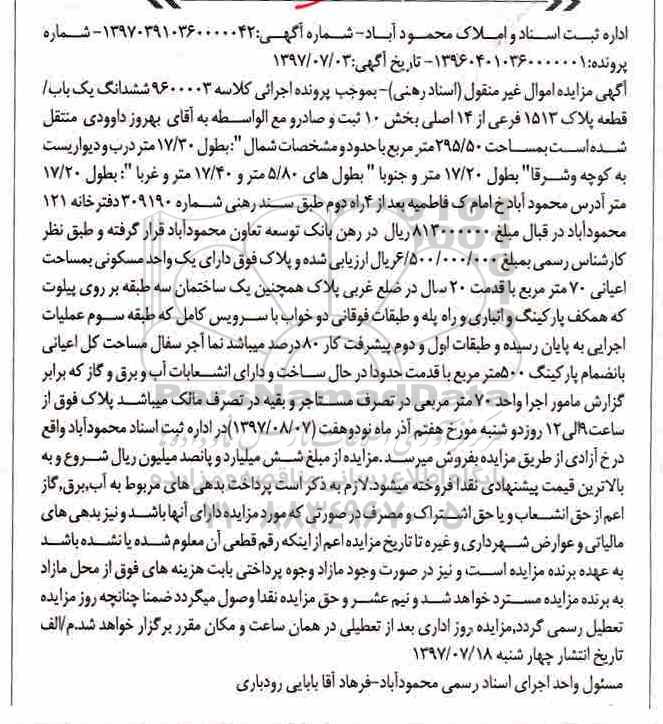 اداره ثبت اسناد و املاک محمود آباد- شماره آگهی:۱۳۹۷۰۳۹۱۰۳۶۰۰۰۰۰۴۲- شماره
پرونده:۱۳۹۶۰۴۰۱۰۳۶۰۰۰۰۰۰۱- تاریخ آگهی:۱۳۹۷/۰۷/۰۳
آگهی مزایده اموال غیر منقول (اسناد رهنی)-بموجب پرونده اجرائی کلاسه ۹۶۰۰۰۰۳ ششدانگ یک باب/
قطعه پلاک ۱۵۱۳ فرعی از ۱۴ اصلی بخش ۱۰ ثبت و صادرو مع الواسطه به آقای بهروز داوودی منتقل
شده است بمساحت ۲۹۵/۵۰متر مربع با حدود و مشخصات شمال ":بطول ۱۷/۳۰ متر درب و دیواریست
به کوچه وشرقا" بطول ۱۷/۲۰ متر و جنوبا " بطول های ۵/۸۰ متر و ۱۷/۴۰ متر و غربا ": بطول ۱۷/۲۰
متر آدرس محمود آباد خ امام ک فاطمیه بعد از ۴راه دوم طبق سند رهنی شماره ۳۰۹۱۹۰دفترخانه ۱۲۱
محمودآباد در قبال مبلغ ۸۱۳۰۰۰۰۰۰ریال در رهن بانک توسعه تعاون محمودآباد قرار گرفته و طبق نظر
کارشناس رسمی بمبلغ ۶/۵۰۰/۰۰۰/۰۰۰ریال ارزیابی شده و پلاک فوق دارای یک واحد مسکونی بمساحت
اعیانی ۷۰ متر مربع با قدمت ۲۰ سال در ضلع غربی پلاک همچنین یک ساختمان سه طبقه بر روی پیلوت
که همکف پارکینگ و انباری و راه پله و طبقات فوقانی دو خواب با سرویس کامل که طبقه سوم عملیات
اجرایی به پایان رسیده و طبقات اول و دوم پیشرفت کار ۸۰درصد میباشد نما آجر سفال مساحت کل اعیانی
بانضمام پارکینگ ۵۰۰متر مربع با قدمت حدودا در حال ساخت و دارای انشعابات آب و برق و گاز که برابر
گزارش مامور اجرا واحد ۷۰ متر مربعی در تصرف مستاجر و بقیه در تصرف مالک میباشد پلاک فوق از
ساعت۹الی۱۲ روز دو شنبه مورخ هفتم آذر ماه نود و هفت (۱۳۹۷/۰۸/۰۷)در اداره ثبت اسناد محمودآباد واقع
در خ آزادی از طریق مزایده بفروش میرسد .مزایده از مبلغ شش میلیارد و پانصد میلیون ریال شروع و به
بالاترین قیمت پیشنهادی نقدا فروخته میشود.لازم به ذکر است پرداخت بدهی های مربوط به آب,برق,گاز
اعم از حق انشعاب و یا حق اشتراک و مصرف در صورتی که مورد مزایده دارای آنها باشد و نیز بدهی های
مالیاتی و عوارض شهرداری و غیره تا تاریخ مزایده اعم از اینکه رقم قطعی آن معلوم شده یا نشده باشد
به عهده برنده مزایده است و نیز در صورت وجود مازاد وجوه پرداختی بابت هزینه های فوق از محل مازاد
به برنده مزایده مسترد خواهد شد و نیم عشر و حق مزایده نقدا وصول میگردد ضمنا چنانچه روز مزایده
تعطیل رسمی گردد,مزایده روز اداری بعد از تعطیلی در همان ساعت و مکان مقرر برگزار خواهد شد.م/الف
تاریخ انتشار چهار شنبه ۱۳۹۷/۰۷/۱۸
مسئول واحد اجرای اسناد رسمی محمودآباد-فرهاد آقا بابایی رودباری
ParsNamadData